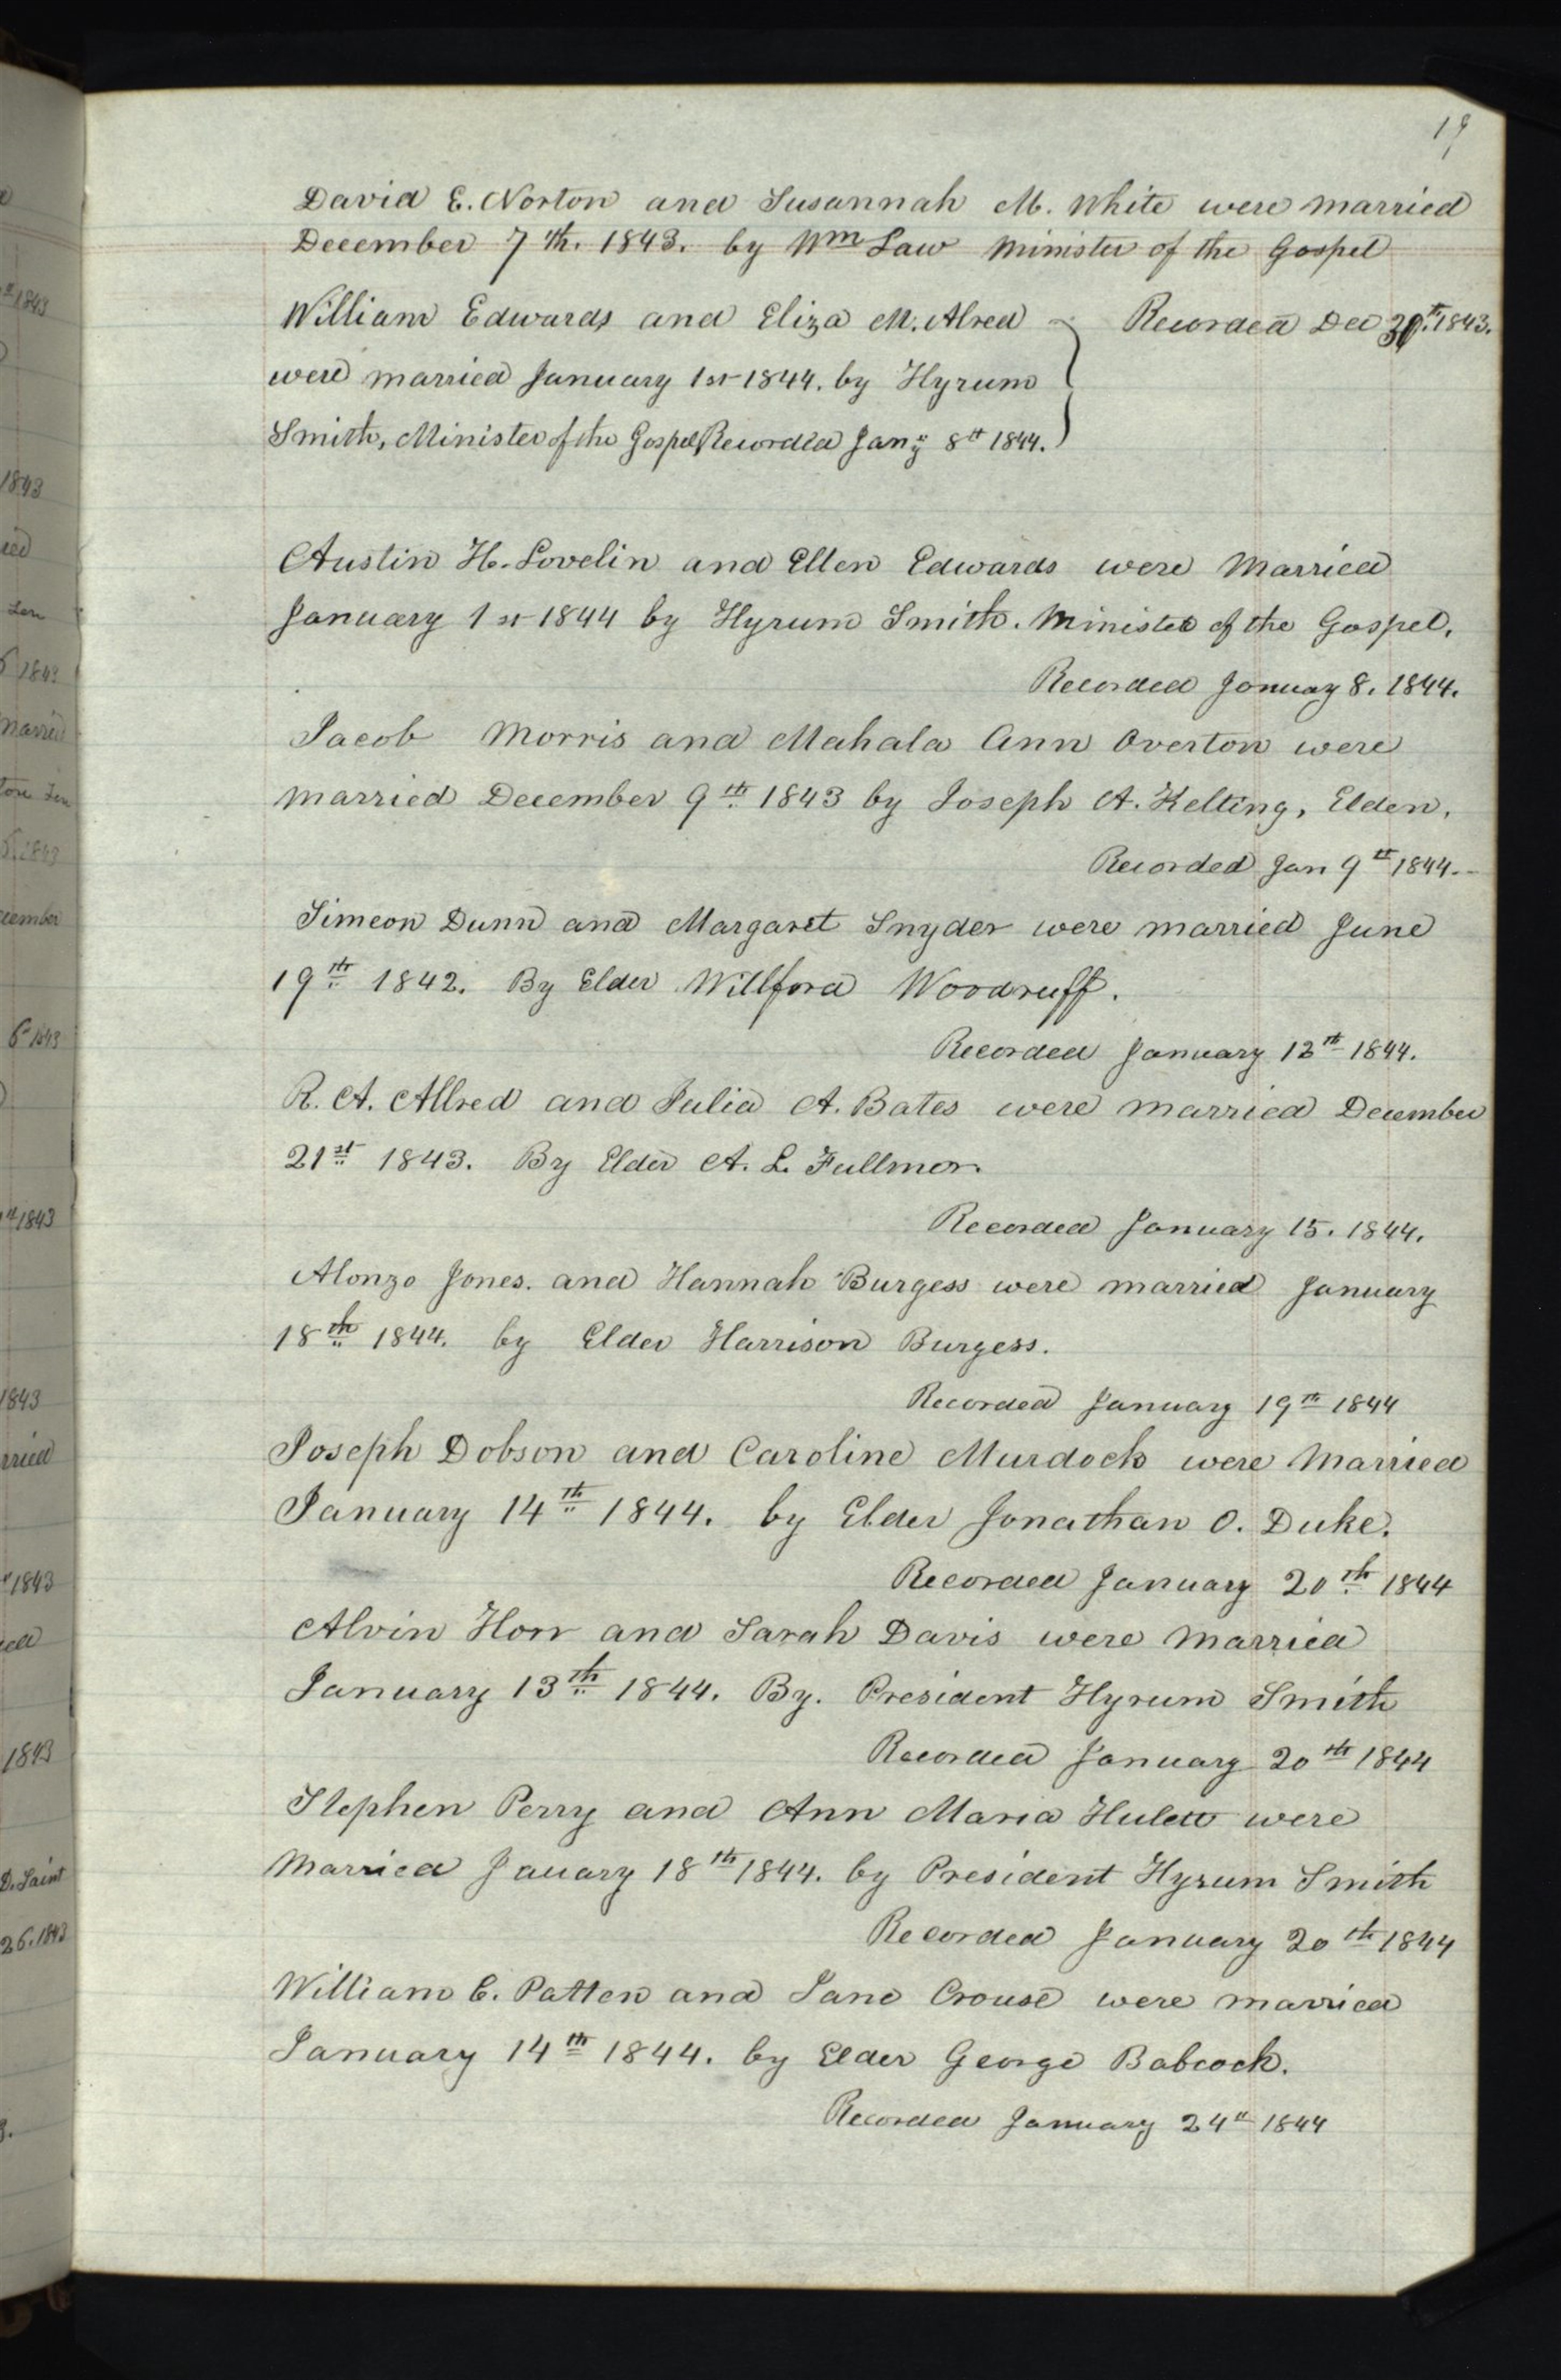 19
David E. Norton and Susannah M. White were married
December 7th. 1843. by Wm Law Minister of the Gospel
Recorded Dec 30th. 1843.
William Edwards and Eliza M. Alred
were married January 1st 1844. by Hyrum
Smith, Minister of the Gospel Recorded Jany 8th 1844.
Austin H. Lovelin and Ellen Edwards were Married
January 1st 1844 by Hyrum Smith. Minister of the Gospel.
Recorded January 8. 1844.
Jacob Morris and Mahala Ann Overton were
married December 9th 1843 by Joseph A. Kelting, Elder.
Recorded Jan 9th 1844.
Simeon Dunn and Margaret Snyder were married June
19th 1842. By Elder Willford Woodruff.
Recorded January 13th 1844.
R. A. Allred and Julia A. Bates were married December
21st 1843. By Elder A. L. Fullmor.
Recorded January 15. 1844.
Alonzo Jones. and Hannah Burgess were married January
18th 1844. by Elder Harrison Burgess.
Recorded January 19th 1844
Joseph Dobson and Caroline Murdock were Married
January 14th 1844. by Elder Jonathan O. Duke.
Recorded January 20th 1844
Alvin Horr and Sarah Davis were married
January 13th 1844. By. President Hyrum Smith
Recorded January 20th 1844
Stephen Perry and Ann Maria Hulett were
Married Jauary 18th 1844. by President Hyrum Smith
Recorded January 20th 1844
William C. Patten and Jane Crouse were married
January 14th 1844. by Elder George Babcock.
Recorded January 24th 1844
1843
1843
1843
married
cember
1843
1843
1843
1843
1843
D. Saint
26. 1843